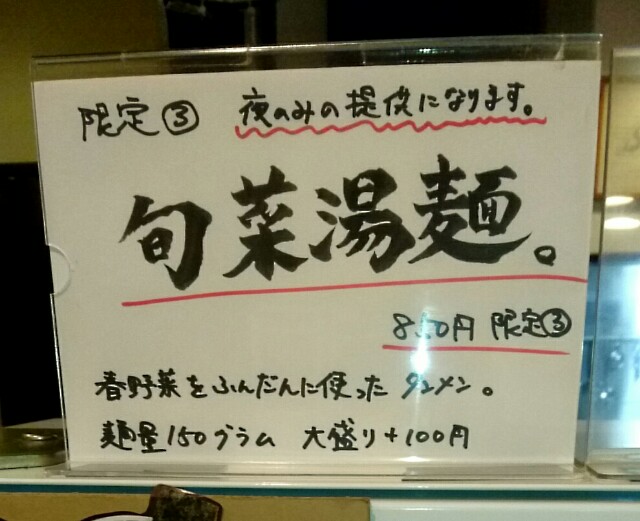 限定③ 夜のみの提供になります。
旬菜湯麺。
850円 限定③
春野菜をふんだんに使ったタンメン。
麺量150グラム 大盛り+100円